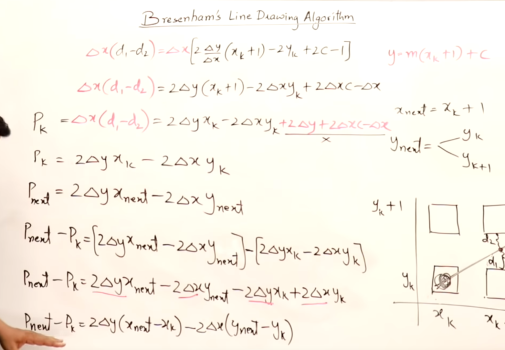 Bresenham's Line Drawing Algorithm
Δx(d₁-d₂)=Δx[2 Δy/Δx (xₖ+1)-2yₖ+2c-1]
y-m(xₖ+1)+c
Δx(d₁-d₂)=2Δy(xₖ+1)-2Δxyₖ+2Δxc-Δx
Pₖ =Δx(d₁-d₂)=2Δyxₖ-2Δxyₖ+2Δy+2Δxc-Δx
x
x_next=xₖ+1
y_next= yₖ
yₖ₊₁
Pₖ = 2Δyxₖ - 2Δxyₖ
P_next = 2Δyx_next - 2Δxy_next
P_next - Pₖ=[2Δyx_next - 2Δxy_next]-[2Δyxₖ-2Δxyₖ]
P_next - Pₖ = 2Δyx_next - 2Δxy_next - 2Δyxₖ + 2Δxyₖ
P_next - Pₖ = 2Δy(x_next - xₖ) - 2Δx(y_next - yₖ)
yₖ+1
d₂
d₁
yₖ
xₖ
xₖ